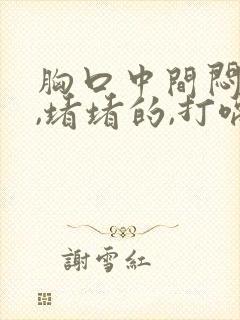 胸口中間悶
,堵堵的,打嗝
謝雪紅